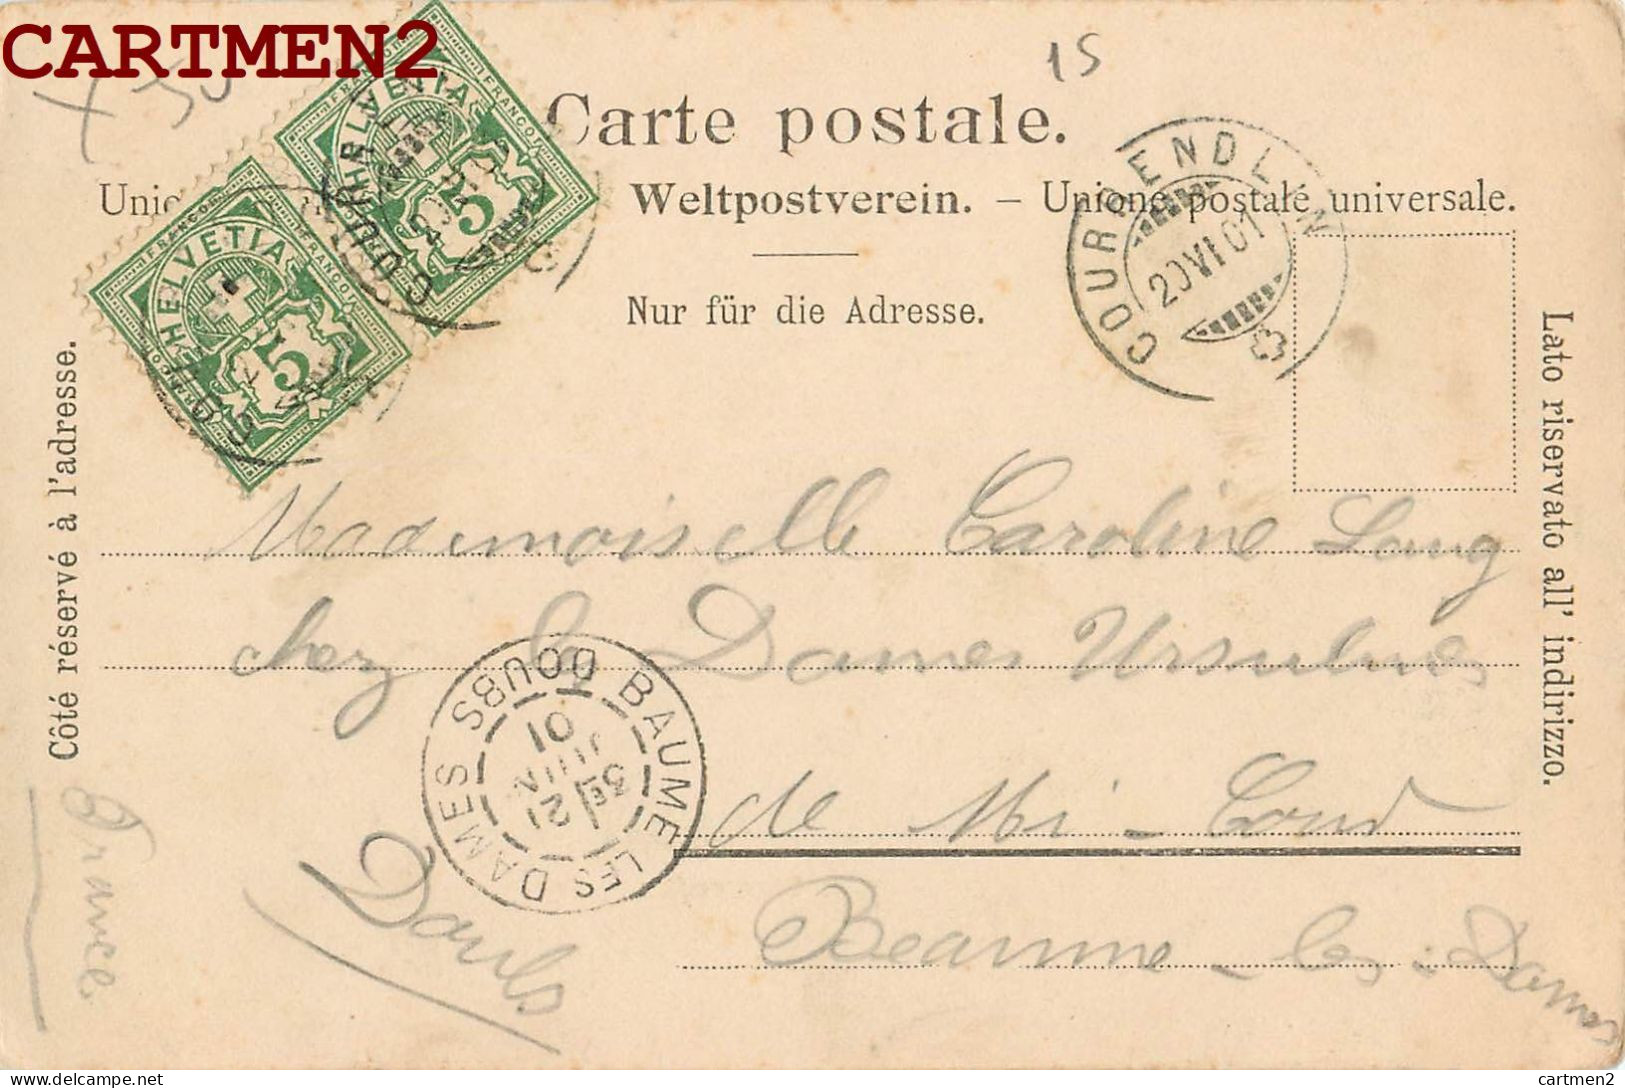 CARTMEN2
15
Carte postale.
Weltpostverein. – Unione postale universale.
Nur für die Adresse.
Côté réservé à l'adresse.
Lato riservato all' indirizzo.
HELVETIA
FRANCO
5
HELVETIA
FRANCO
5
COURRENDLIN
20 VI 01
Mademoiselle Caroline
chez les Dames Ursulines
de
Beaume-les-Dames
Doubs
France
BAUME LES DAMES DOUBS
3E
21
JUIN
01
delcampe.net
cartmen2